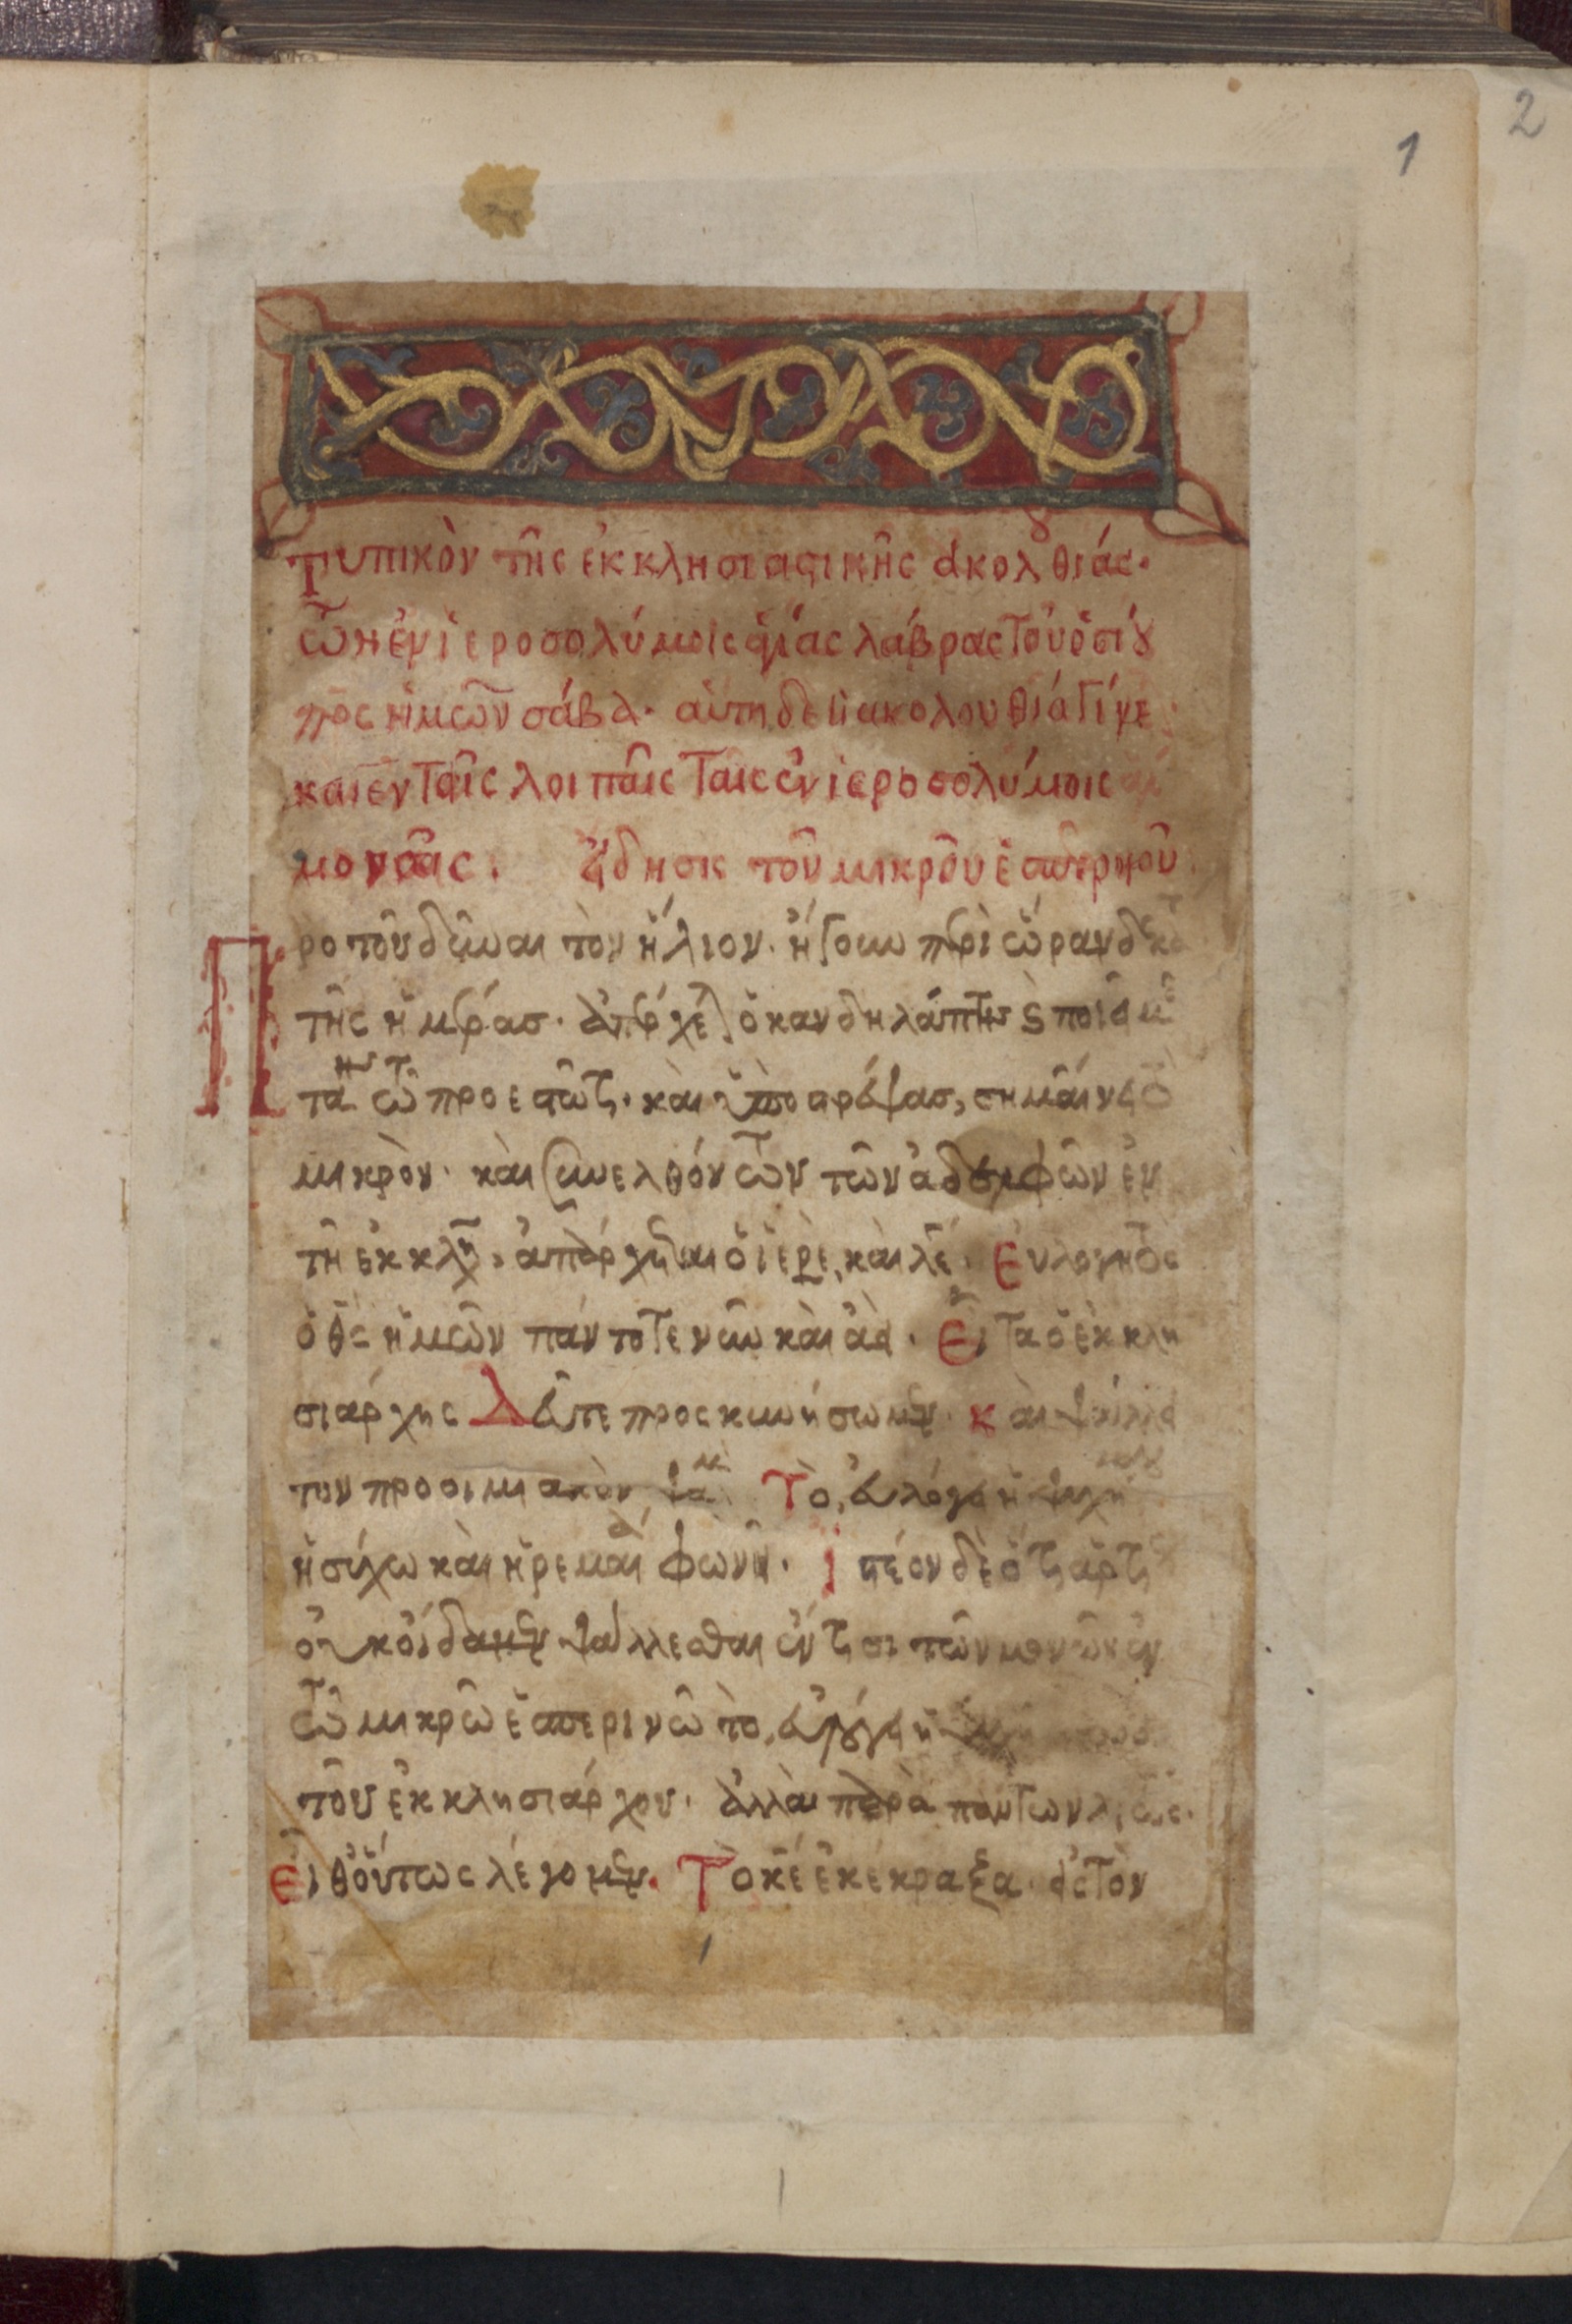 2
1
τυπικὸν τῆς ἐκκλησιαστικῆς ἀκολȣθίας·
τῶν ἐν ἱεροσολύμοις ἁγίας λάβρας τοῦ ὁσίȣ
πρς ἡμῶν σάβα· αὕτη δὲ ἡ ἀκολουθία γίνε
καὶ ἐν ταῖς λοιπαῖς ταῖς ἐν ἱεροσολύμοις
μονάς. τοῦ μικροῦ ἑσπερινοῦ
Προ τοῦ δῦναι τὸν ἥλιον· ἤγουν περὶ ὥραν
τῆς ἡμέρας· ἀπέρχετ ὁ κανδηλάπτης ϗ ποιεῖ
τῶ προεστῶτι· καὶ ὑποστρέψας, σημαίνει τὸ
μικρὸν· καὶ συνελθόντων τῶν ἀδελφῶν ἐν
τῆ ἐκκλη, ἀπάρχεται ὁ ἱερε, καὶ λέ· Εὐλογητὸς
ὁ θς ἡμῶν πάντοτε νῦν καὶ ἀεὶ· Εἶτα ὁ ἐκκλη
σιάρχης Δεῦτε προσκυνήσωμεν· καὶ
τὸν προοιμιακὸν ψα Τὸ, εὐλόγει ἡ ψυχή
ἡσύχω καὶ ἠρεμαία φωνῆ· Ἰστέον δὲ ὅτι ἄρτι
οὐκ οἴδαμεν ψάλλεσθαι ἔν τισι τῶν μονῶν ἐν
τῶ μικρῶ ἑσπερινῶ τὸ, εὐλόγει ἡ
τοῦ ἐκκλησιάρχου· ἀλλὰ παρὰ πάντων
Εἶθ οὕτως λέγομεν· Τὸ κε ἐκέκραξα· εἰς τὸν